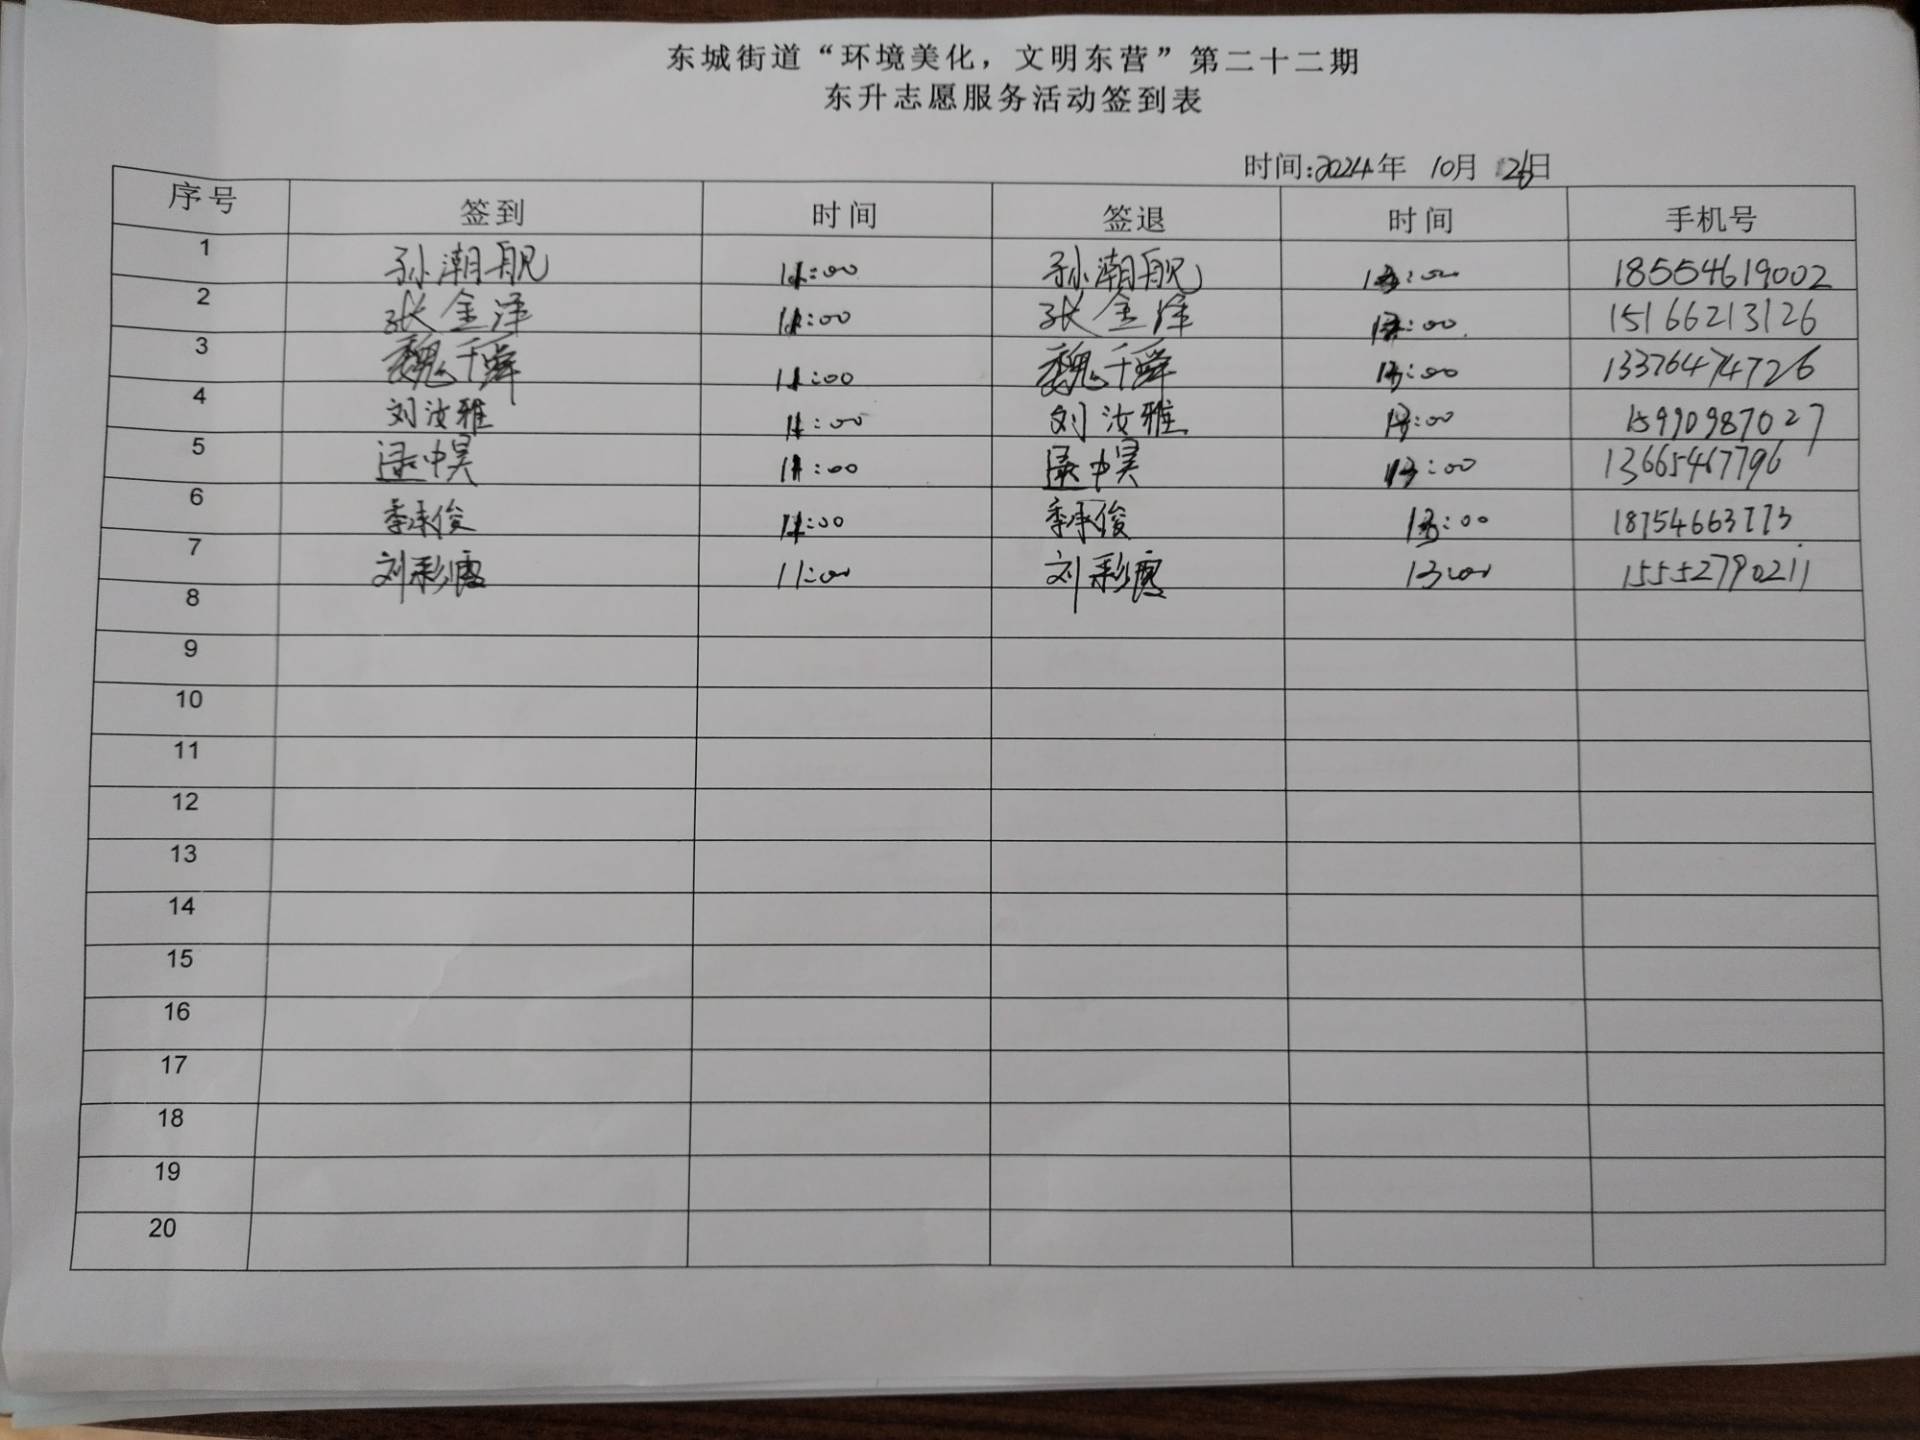 东城街道“环境美化，文明东营”第二十二期
东升志愿服务活动签到表
时间:2024年 10月 26日
序号 签到 时间 签退 时间 手机号
1 孙潮舰 11:00 孙潮舰 13:00 18554619002
2 张金泽 11:00 张金泽 13:00 15166213126
3 魏千舜 11:00 魏千舜 13:00 13376474726
4 刘汝雅 11:00 刘汝雅 13:00 15990987027
5 11:00 13:00 13665467796
6 季承俊 11:00 季承俊 13:00 18754663773
7 刘彩霞 11:00 刘彩霞 13:00 15552790211
8
9
10
11
12
13
14
15
16
17
18
19
20